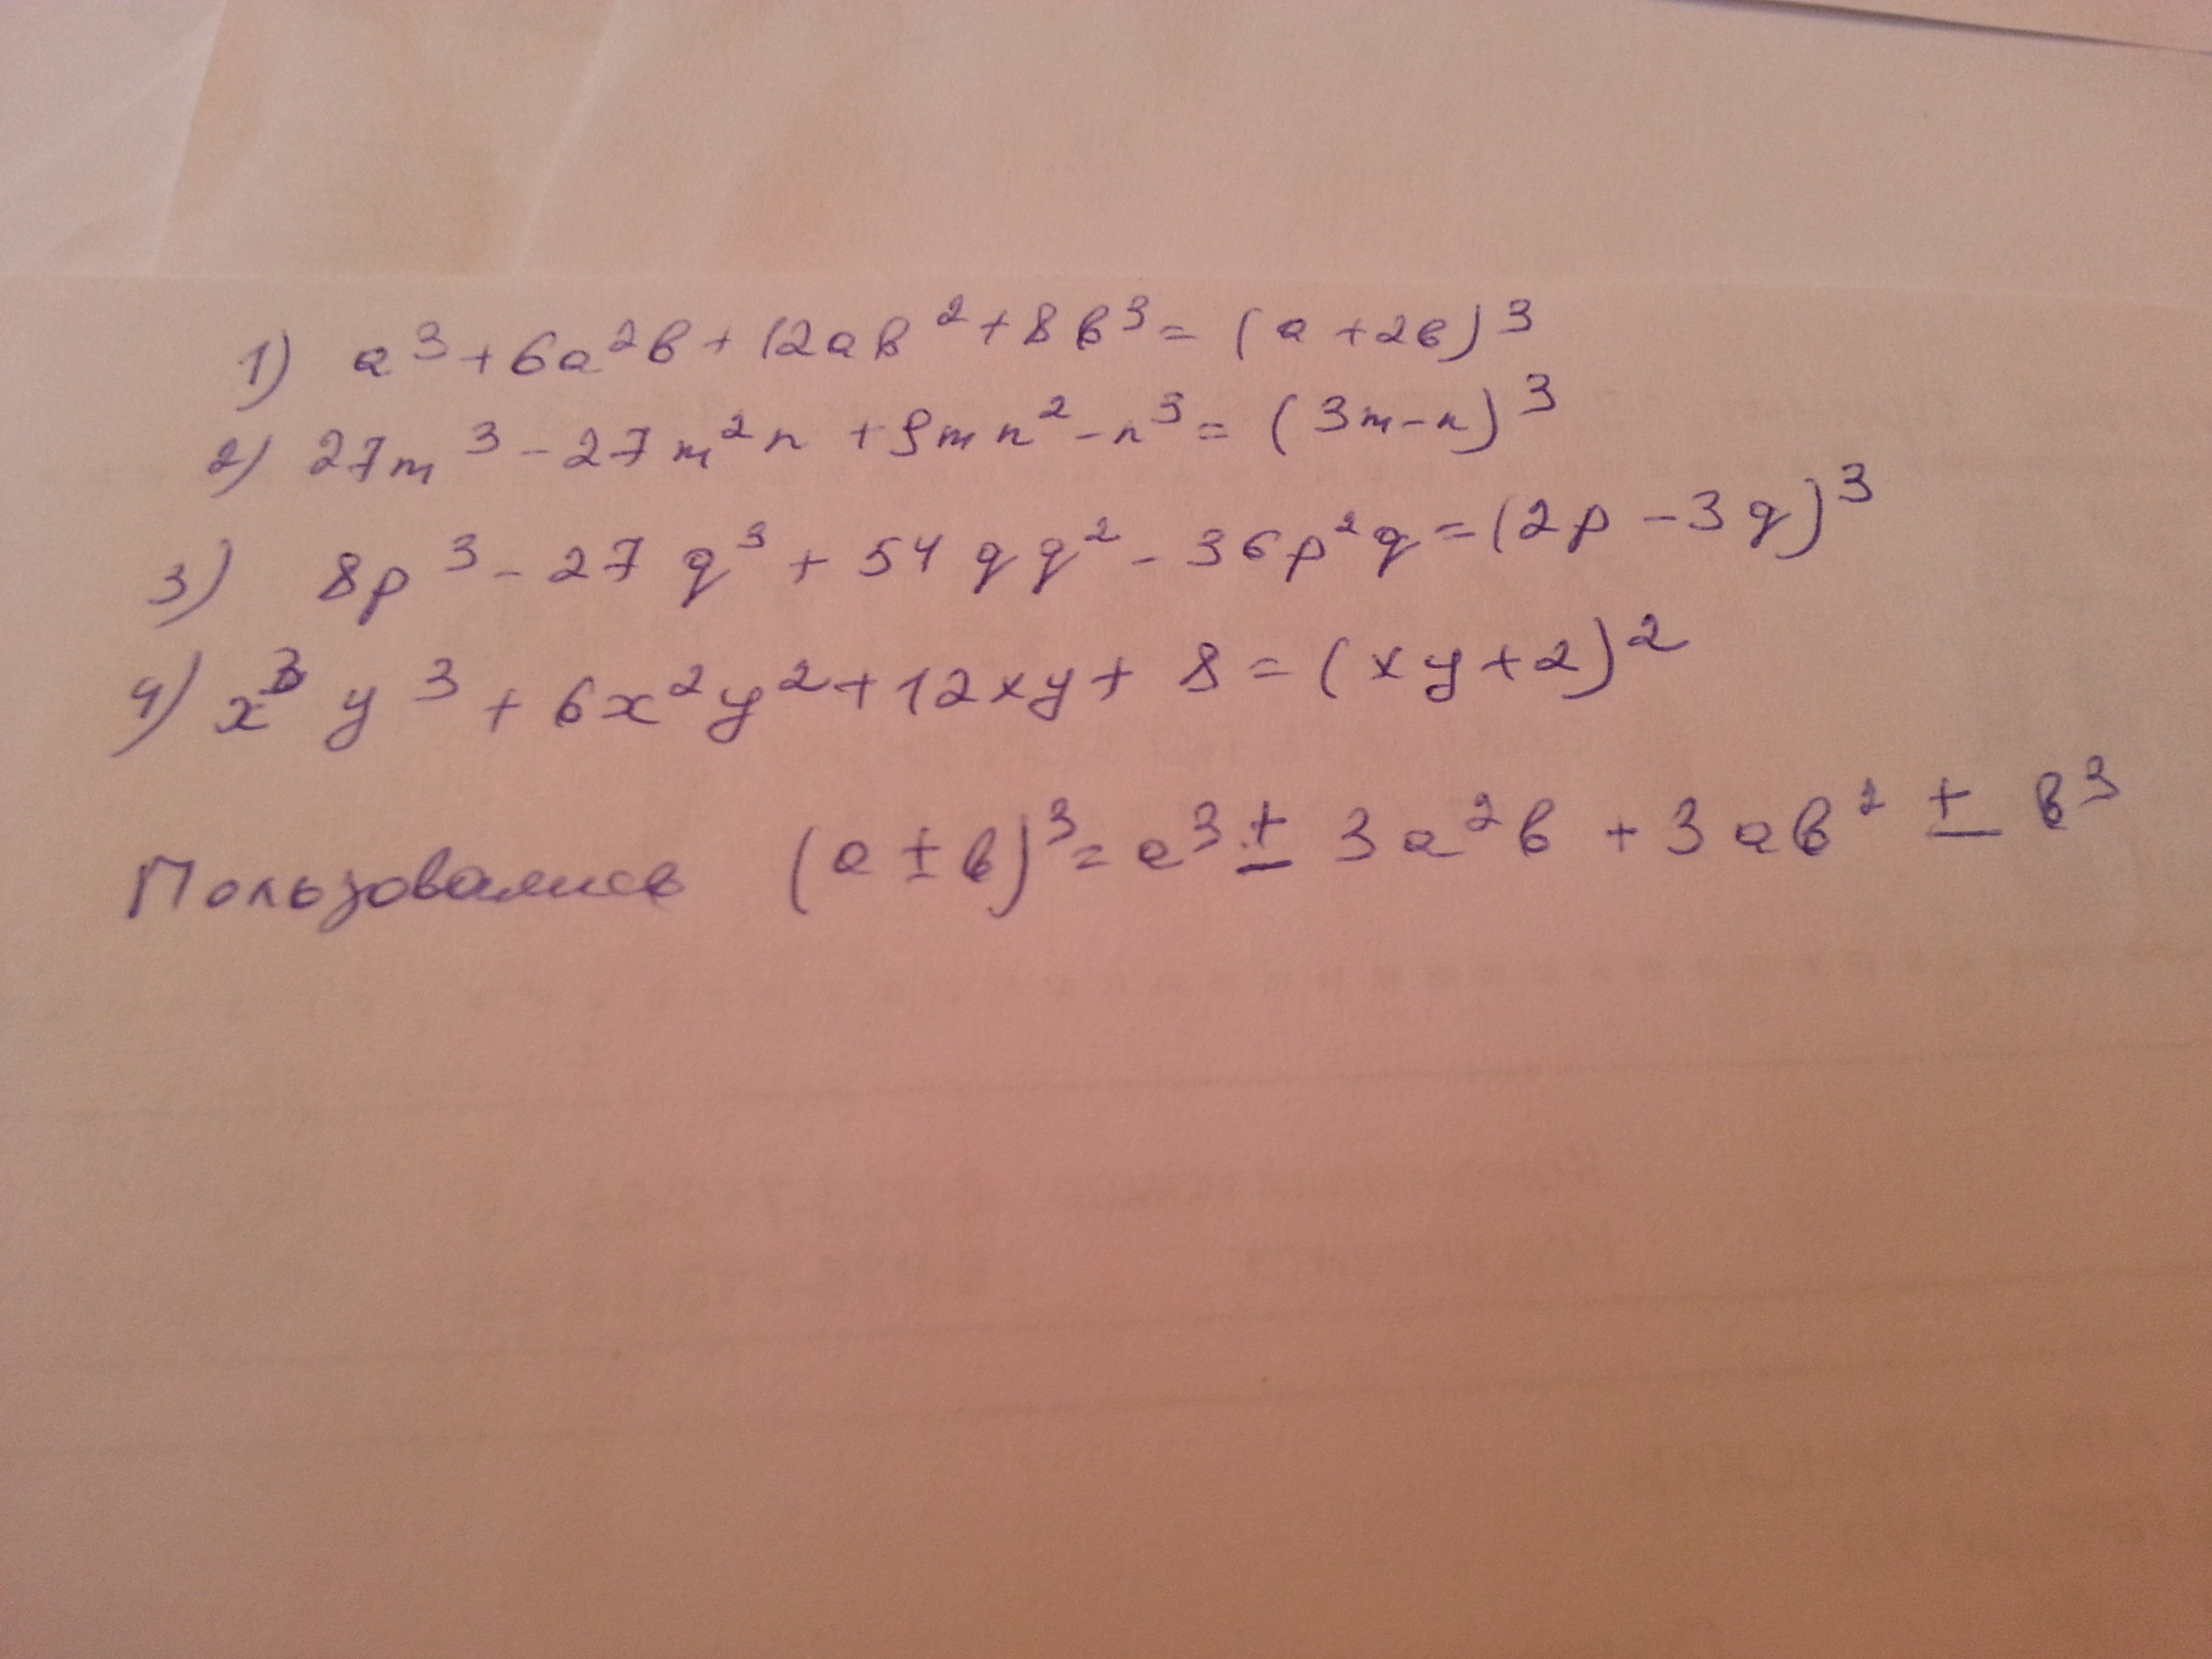 1) a³+6a²в+12aв²+8в³=(a+2в)³
2) 27m³-27m²n+9mn²-n³=(3m-n)³
3) 8p³-27q³+54qq²-36p²q=(2p-3q)³
4) x³y³+6x²y²+12xy+8=(xy+2)²
Пользовались (a±в)³=a³±3a²в+3aв²±в³